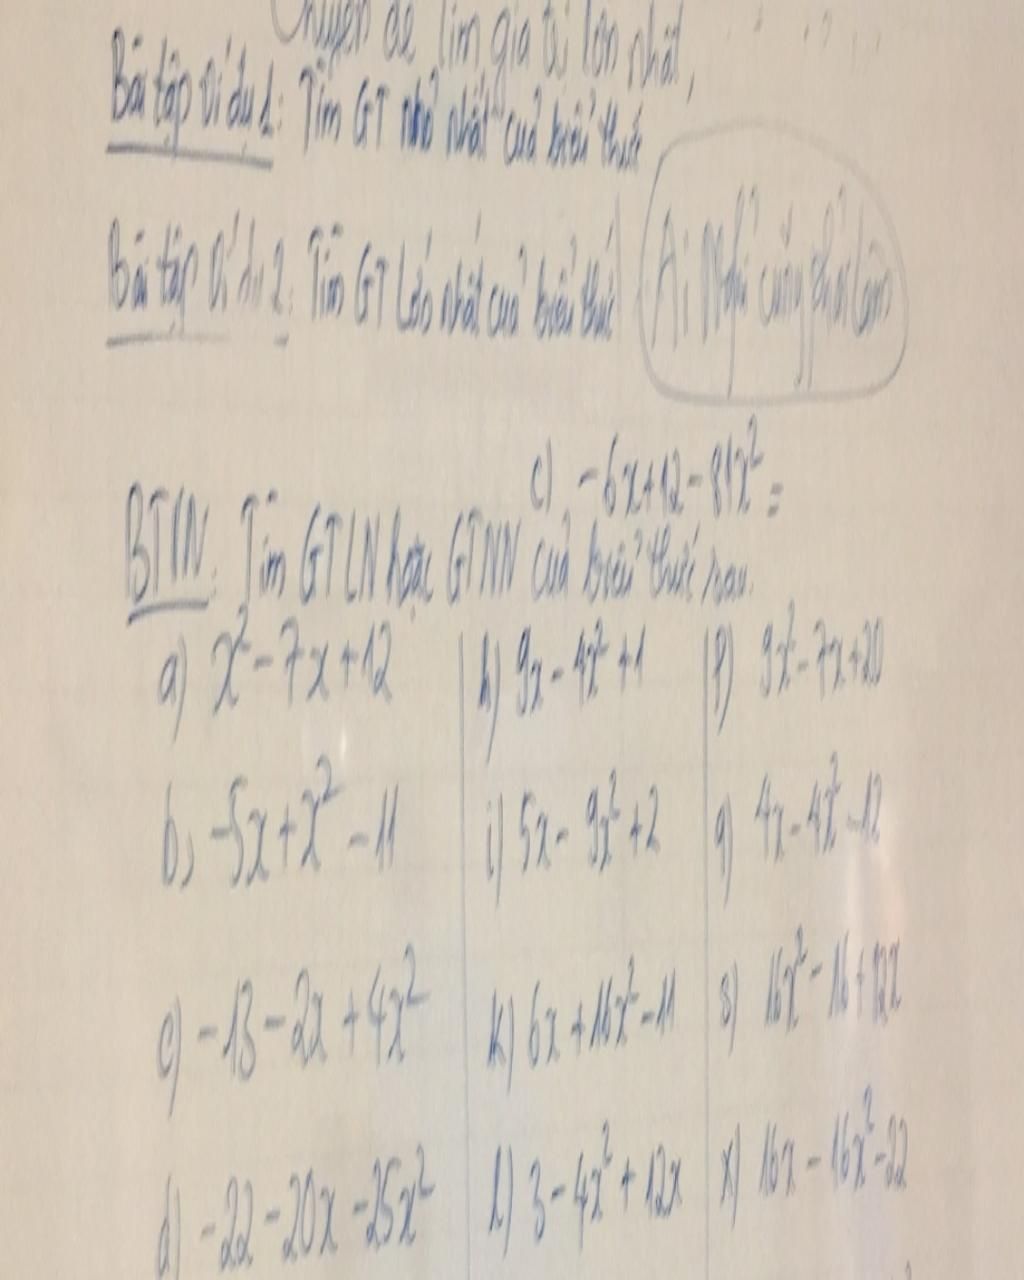 Chuyên đề tìm giá trị lớn nhất,
Bài tập Ví dụ 1: Tìm GT nhỏ nhất của biểu thức
Bài tập Ví dụ 2: Tìm GT Lớn nhất của biểu thức
Ai Nghỉ cũng phải làm
c) -6x+12-81x² =
BTVN: Tìm GTLN hoặc GTNN của biểu thức sau.
a) x²-7x+12
h) 9x-4x²+1
p) 9x²-7x+20
b) -5x+x²-11
i) 5x-9x²+2
q) 4x-4x²-12
c) -13-2x+4x²
k) 6x+16x²-11
s) 16x²-16+12x
d) -22-20x-25x²
l) 3-4x²+12x
x) 16x-16x²-22